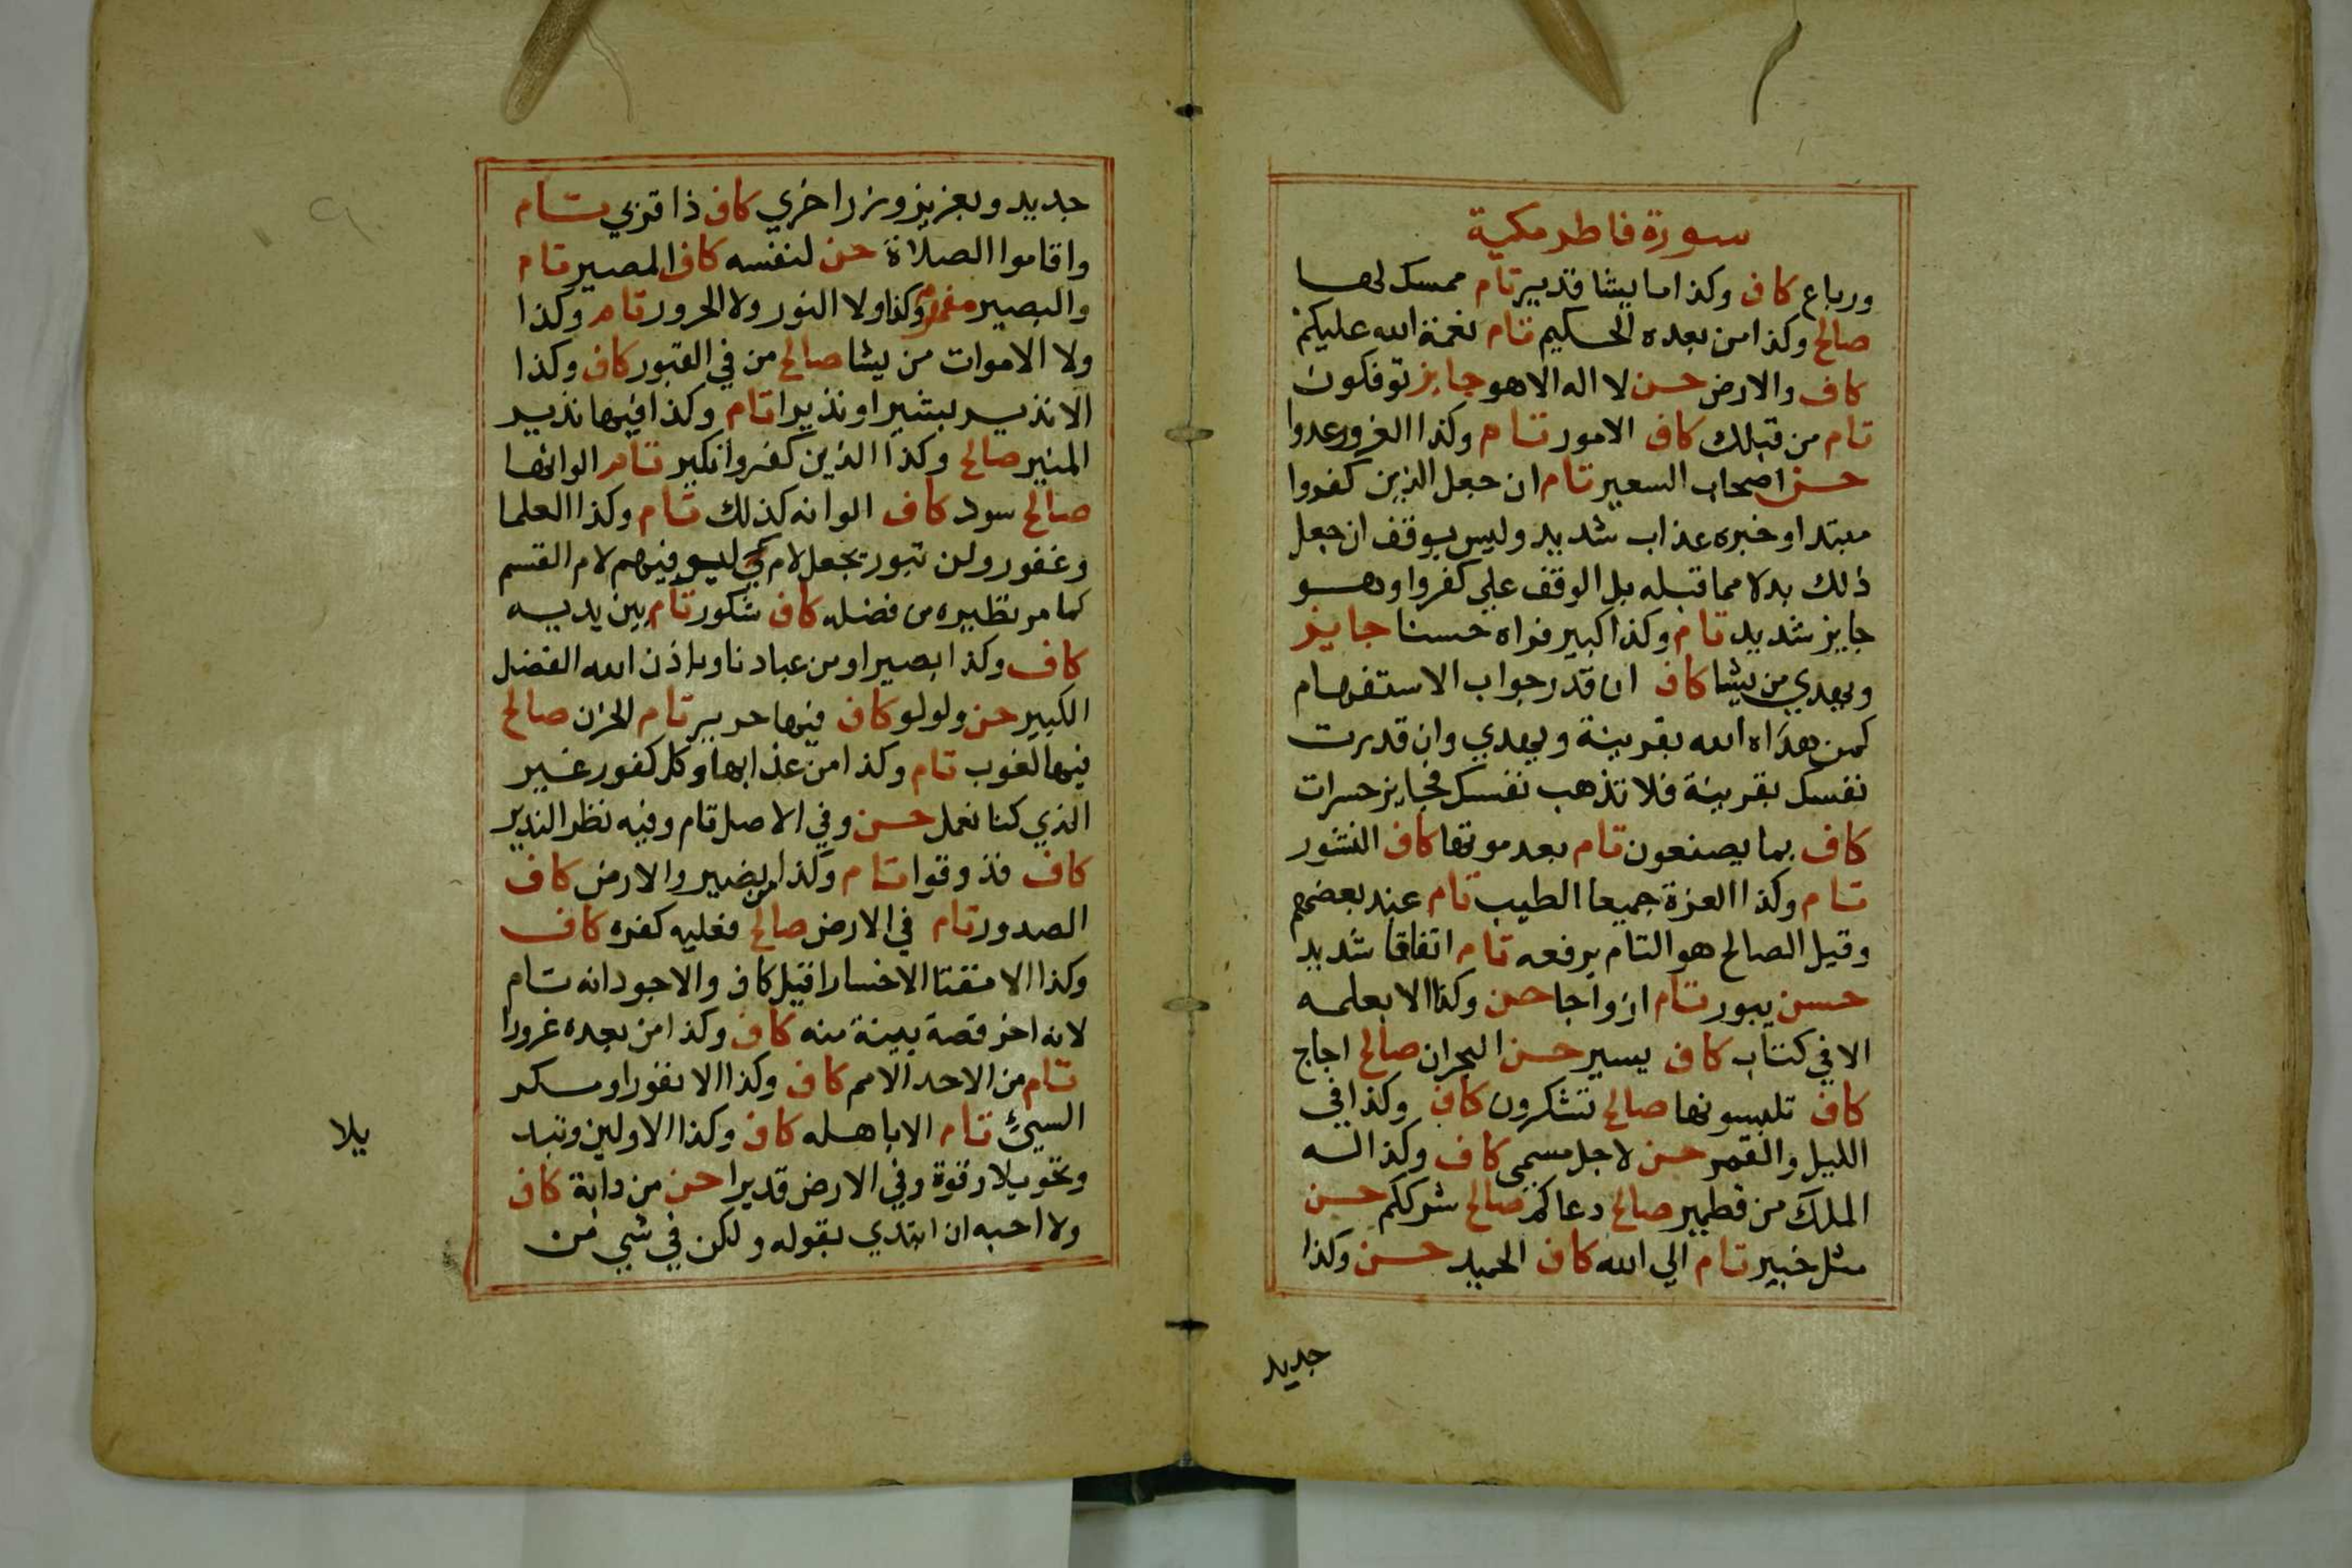 سورة فاطر مكية
ورباع كاف وكذا ما يشا قدير تام ممسك لها
صالح وكذا من بعده الحكيم تام نعمة الله عليكم
كاف والارض حسن لا اله الا هو جايز توفكون
تام من قبلك كاف الامور تام وكذا الغرور عدوا
حسن اصحاب السعير تام ان جعل الذين كفروا
مبتدا وخبره عذاب شديد وليس بوقف ان جعل
ذلك بدلا مما قبله بل الوقف علي كفروا وهو
جايز شديد تام وكذا كبير فراه حسنا جايز
ويهدي من يشا كاف ان قدر جواب الاستفهام
كمن هداه الله بقرينة ويهدي وان قدرت
نفسك بقرينة فلا تذهب نفسك فجايز حسرات
كاف بما يصنعون تام بعد موتها كاف النشور
تام وكذا العزة جميعا الطيب تام عند بعضهم
وقيل الصالح هو التام يرفعه تام اتفاقا شديد
حسن يبور تام ازواجا حسن وكذا الا بعلمه
الا في كتاب كاف يسير حسن البحران صالح اجاج
كاف تلبسونها صالح تشكرون كاف وكذا في
الليل والقمر حسن لاجل مسمى كاف وكذا له
الملك من قطمير صالح دعاكم صالح شرككم حسن
مثل خبير تام الي الله كاف الحميد حسن وكذا
جديد
جديد وبعزيز وزر اخري كاف ذا قربي تام
واقاموا الصلاة حسن لنفسه كاف المصير تام
والبصير مفهوم وكذا ولا النور ولا الحرور تام وكذا
ولا الاموات من يشا صالح من في القبور كاف وكذا
الا نذير بشيرا ونذيرا تام وكذا فيها نذير
المنير صالح وكذا الذين كفروا نكير تام الوانها
صالح سود كاف الوانه كذلك تام وكذا العلما
وغفور ولن تبور بجعل لام كي ليوفيهم لام القسم
كما مر نظيره من فضله كاف شكور تام بين يديه
كاف وكذا بصيرا ومن عبادنا وباذن الله الفضل
الكبير حسن ولولو كاف فيها حرير تام الحزن صالح
فيها لغوب تام وكذا من عذابها وكل كفور غير
الذي كنا نعمل حسن وفي الاصل تام وفيه نظر النذير
كاف فذوقوا تام وكذا من نصير والارض كاف
الصدور تام في الارض صالح فعليه كفره كاف
وكذا الا مقتا الا خسارا قيل كاف والاجود انه تام
لانه اخر قصة بينة منه كاف وكذا من بعده غرورا
تام من الاحد الامم كاف وكذا الا نفورا ومكر
السيئ تام الا باهله كاف وكذا الاولين وتبد
وتحويلا وقوة وفي الارض قديرا حسن من دابة كاف
ولا احبه ان ابتدي بقوله ولكن في شي من
يلا